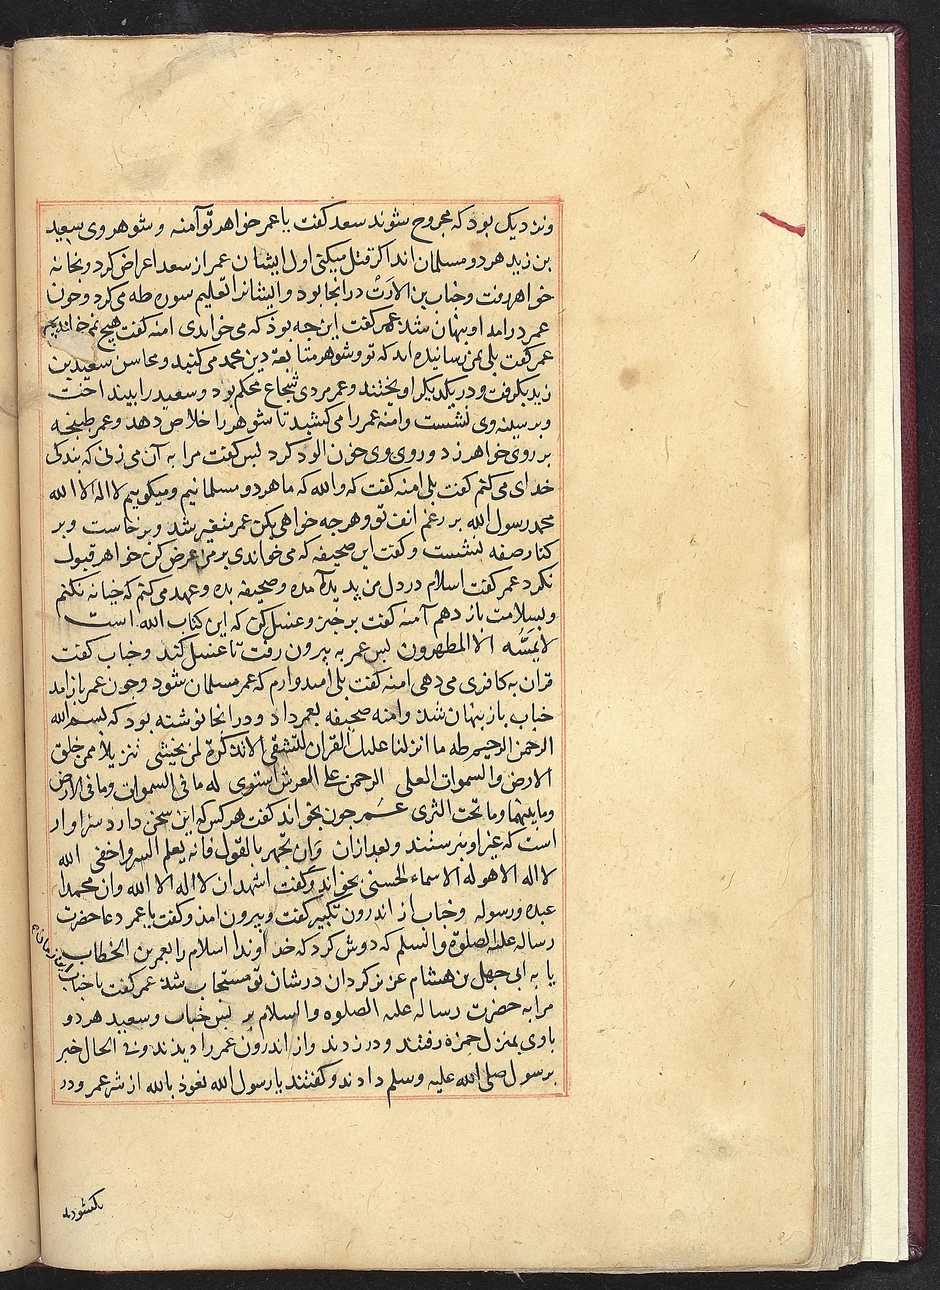 ونزدیک بود که مجروح شوند سعد کفت یا عمر خواهر تو آمنه و شوهر وی سعید
بن زید هر دو مسلمان اند اکر قتل میکنی اول ایشان عمر از سعد اعراض کرد و بخانه
خواهر رفت و خباب بن الارت در انجا بود و ایشانرا تعلیم سوره طه می کرد و جون
عمر در امد او پنهان شد عمر کفت این جه بوذ که می خواندی امنه کفت هیج نمی خواندیم
عمر کفت بلی بمن رسانیده اند که تو و شوهر متابعة دین محمد می کنید و محاسن سعید بن
زید بکرفت و در یکدیکر اویختند و عمر مردی شجاع محکم بود و سعید را بینداخت
و بر سینه وی نشست و امنه عمر را می کشید تا شوهر را خلاص دهد و عمر طبنجه
بر روی خواهر زد و روی وی خون الود کرد بس کفت مرا به آن می زنی که بندکی
خدای می کنم کفت بلی امنه کفت که والله که ما هر دو مسلمانیم و میکوییم لا اله الا الله
محمد رسول الله بر رغم انف تو و هر جه خواهی بکن عمر متغیر شد و برخاست و بر
کنار صفه بنشست و کفت این صحیفه که می خواندی بر من عرض کن خواهر قبول
نکرد عمر کفت اسلام در دل من پدید آمده و صحیفه بده و عهد می کنم که خیانه نکنم
و بسلامت باز دهم آمنه کفت برخیز و غسل کن که این کتاب الله است
لا یمسه الا المطهرون بس عمر به بیرون رفت تا غسل کند و خباب کفت
قران به کافری می دهی امنه کفت بلی امیدوارم که عمر مسلمان شود و جون عمر باز امد
خباب باز پنهان شد و امنه صحیفه بعمر داد و در انجا نوشته بود که بسم الله
الرحمن الرحیم طه ما انزلنا علیک القران لتشقی الا تذکرة لمن یخشی تنزیلا ممن خلق
الارض والسموات العلی الرحمن علی العرش استوی له ما فی السموات وما فی الارض
وما بینهما وما تحت الثری عمر جون بخواند کفت هر کس که این سخن دارد سزاوار
است که غیر او نپرستند و بعد ازان وان تجهر بالقول فانه یعلم السر واخفی الله
لا اله الا هو له الاسماء الحسنی بخواند و کفت اشهد ان لا اله الا الله وان محمدا
عبده ورسوله و خباب از اندرون تکبیر کفت و بیرون امذ و کفت یا عمر دعا حضرت
رساله علیه الصلوة والسلم که دوش کرد که خداوندا اسلام را بعمر بن الخطاب
یا به ابی جهل بن هشام عزیز کردان در شان تو مستجاب شد عمر کفت یا خباب
مرا به حضرت رساله علیه الصلوه والسلام بر بس خباب و سعید هر دو
با وی بمنزل حمزه رفتند و در زدند و از اندرون عمر را دیذند و فی الحال خبر
بر رسول صلی الله علیه وسلم دادند و کفتند یا رسول الله نعوذ بالله از شر عمر و در
بکشودند